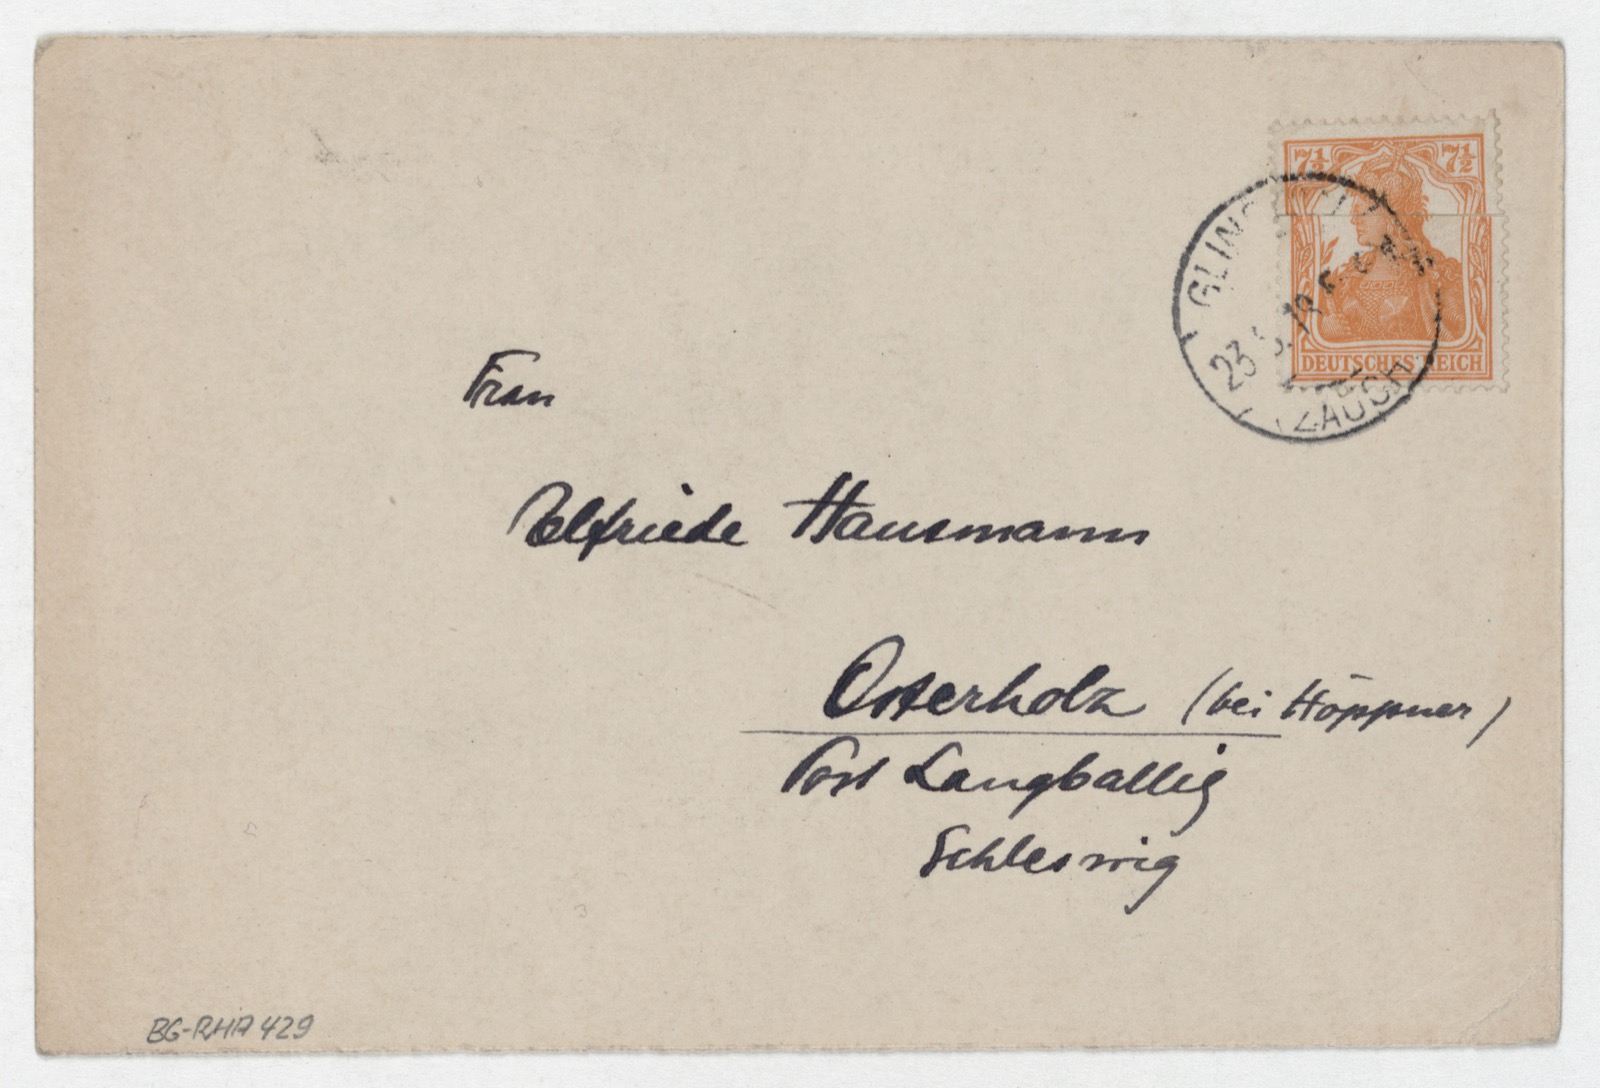 7½ 7½
DEUTSCHES REICH
23.5.19
ZAUCH
Frau
Elfriede Hausmann
Osterholz (bei Höppner)
Post Langballig
Schleswig
BG-RHA 429